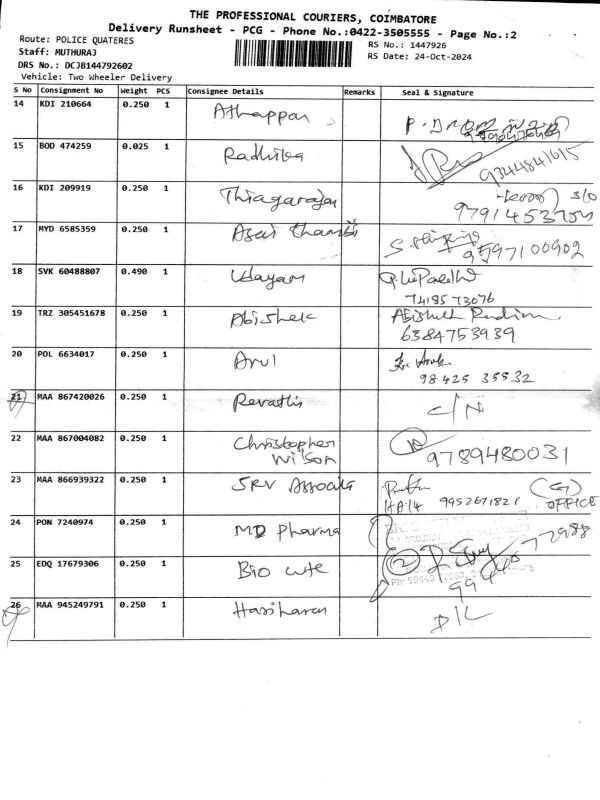 THE PROFESSIONAL COURIERS, COIMBATORE
Delivery Runsheet - PCG - Phone No.:0422-3505555 - Page No.:2
Route: POLICE QUATERES
RS No.: 1447926
Staff: MUTHURAJ
RS Date: 24-Oct-2024
DRS No.: DCJB144792602
Vehicle: Two Wheeler Delivery
S No Consignment No Weight PCS Consignee Details Remarks Seal & Signature
14 KDI 210664 0.250 1 Athappan
15 BOD 474259 0.025 1 Radhika 9344841615
16 KDI 209919 0.250 1 Thiagarajan S/O
17 MYD 6585359 0.250 1 Asai thambi 9597100902
18 SVK 60488807 0.490 1 Udayam
7418573076
19 TRZ 305451678 0.250 1 Abishek
6384753939
20 POL 6634017 0.250 1 Arul
98425 35532
21 MAA 867420026 0.250 1 Revathi C/N
22 MAA 867004082 0.250 1 Christopher
Wilson 9789480031
23 MAA 866939322 0.250 1 SRV Associats
9952671821 OFFICE
24 PON 7240974 0.250 1 MD Pharma
25 EDQ 17679306 0.250 1 Bio cute
26 MAA 945249791 0.250 1 Hariharan D/L